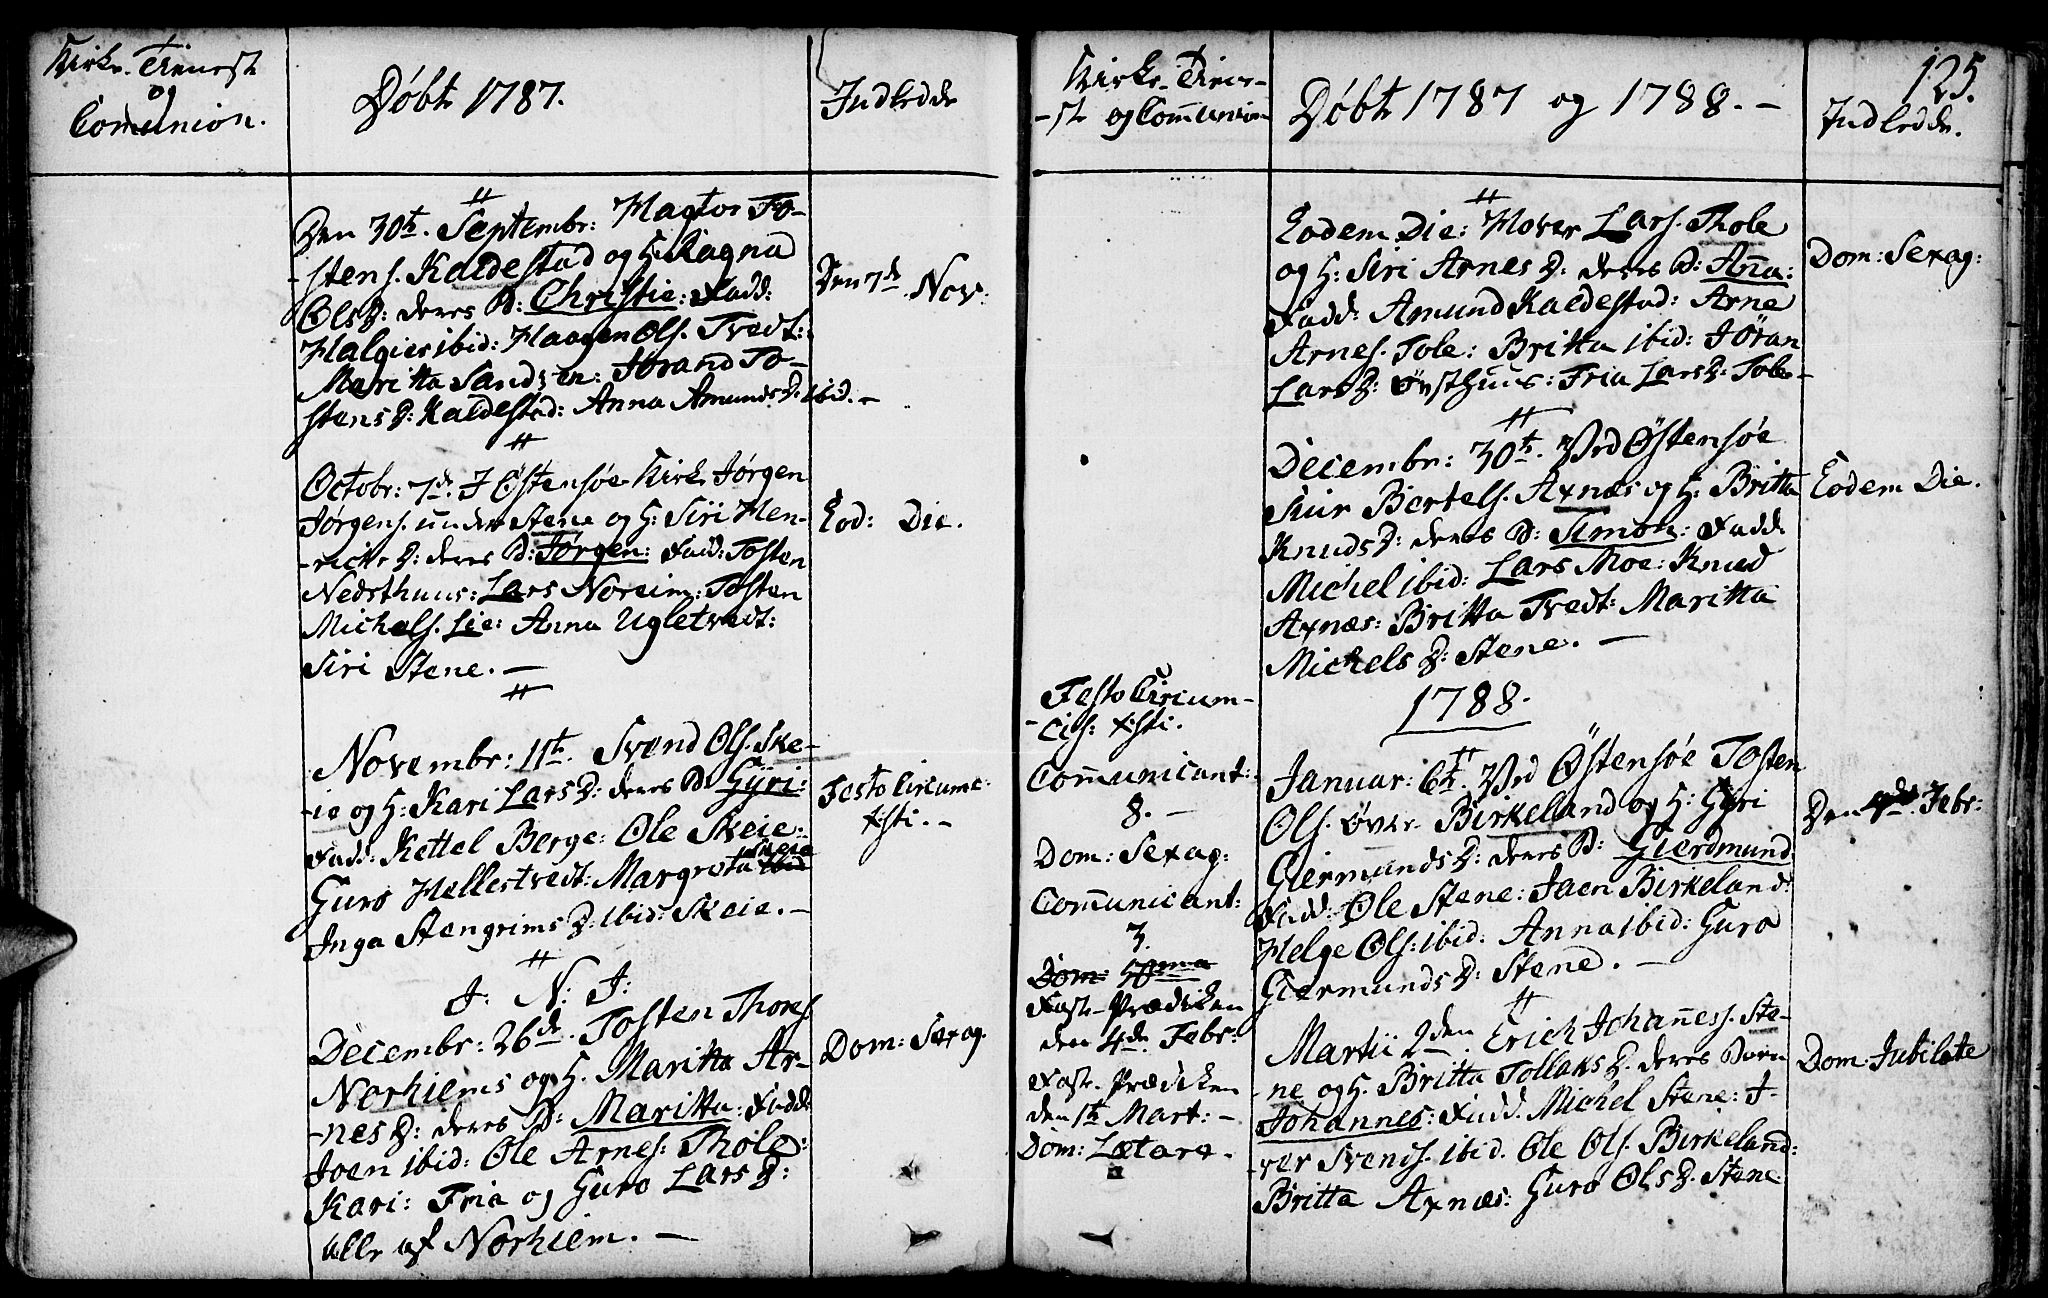 Kirke-Tienest
og
Comunion.
Døbte 1787.
Indledde
Den 30te. Septembr: Hagtor To-
stens. Kaldestad og H: Ragna
Ols D: deres D: Christie: Fadd:
Halgier ibid: Haagen Ols. Tvedt:
Maritta Sandven: Jørand To-
stens D: Kaldestad: Anna Amunds D: ibid.-
Den 7de. Nov:
Octobr: 7de. I Østensøe Kirke Jørgen
Jørgens. under Stene og H: Siri Hen-
-richs D: deres D: Jørgen: Fadd: Tosten
Nedsthuus: Lars Noreim: Tosten
Michels. Lie: Anna Ugletvedt:
Siri Stene.-
Eod: Die.
Novembr: 11te. Svend Ols. Ske-
-ie og H: Kari Lars D: deres D: Gÿri:
Fadd: Kettel Berge: Ole Skeie:
Guro Hellestvedt: Margreta ibid Skeie
Inga Stengrims D: ibid: Skeie.-
Festo Circumc:
Xsti.-
J: N: J:
Decembr: 26de. Tosten Thores
Norhiems og H. Maritta Ar-
-nes D: deres D: Maritta: Fadd:
Joen ibid: Ole Arnes: Thole:
Kari: Tria og Guro Lars D:
alle af Norhiem.-
Dom: Sexag.
125.
Kirke-Tiene-
-ste og Communion
Døbte 1787 og 1788.-
Indledde.
Eodem Die: Hover Lars. Thole
og H: Siri Arnes D: deres D: Anna:
Fadd: Amund Kaldestad: Arne
Arnes. Tole: Britta ibid: Jøran
Lars D: Øvsthuus: Tria Lars D: Tole-
Dom: Sexag:
Decembr: 30te. Ved Østensøe
Siur Bertels. Axnæs og H: Britta
Knuds D: deres D: Simon: Fadd:
Michel ibid: Lars Moe: Knud
Axnæs: Britta Tvedt: Maritta
Michels D: Stene.-
Eodem Die.
1788.
Festo Circum-
-cis: Xsti.
Communicant:
8.-
Dom: Sexag:
Communicant:
3.
Dom:
Faste-Prædiken
den 4de. Febr:
Faste-Prædiken
den 1te Mart:-
Dom: Lætare.
Januar: 6te. Ved Østensøe Tosten
Ols. øver-Birkeland og H: Gÿri
Giermunds D: deres D: Gierdmund
Fadd: Ole Stene: Joen Birkeland:
Helge Ols: ibid: Anna ibid: Guro
Giermunds D: Stene.-
Den Febr:
Martii 2den Erich Johanness. Ste-
-ne og H. Britta Tollaks D. deres Barn
Johannes: Fadd. Michel Stene: I-
-ver Svends. ibid. Ole Ols. Birkeland:
Britta Axnæs: Guro Ols D. Stene
Dom: Jubilate